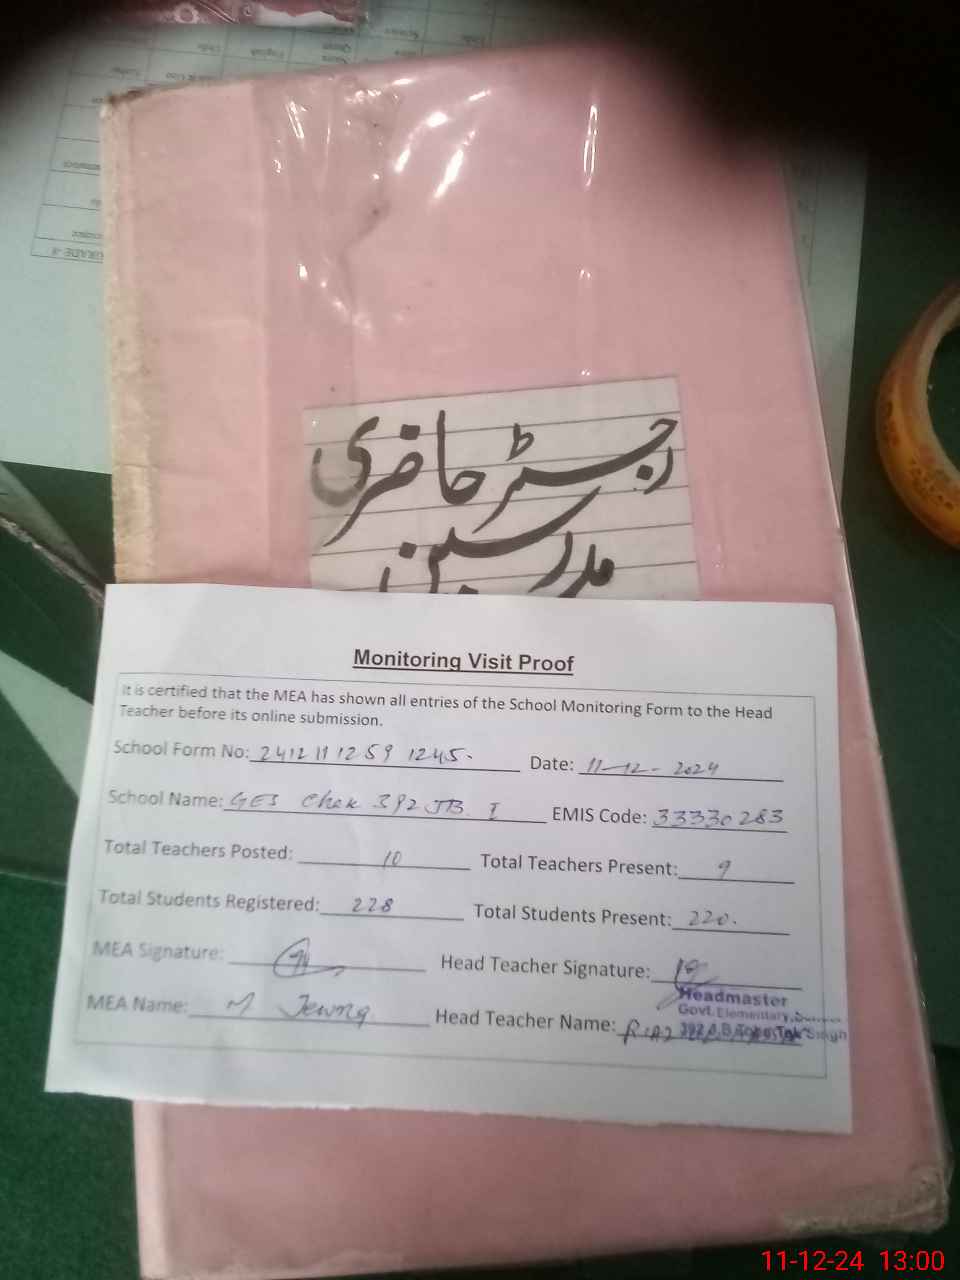 رجسٹر حاضری
مدرسین
Monitoring Visit Proof
It is certified that the MEA has shown all entries of the School Monitoring Form to the Head
Teacher before its online submission.
School Form No: 2412111259 1245. Date: 11-12-2024
School Name: GES Chak 392 JB I EMIS Code: 33330283
Total Teachers Posted: 10 Total Teachers Present: 9
Total Students Registered: 228 Total Students Present: 220.
MEA Signature: Head Teacher Signature:
Headmaster
Govt. Elementary
MEA Name: M Head Teacher Name:
392 J.B Toba Tek Singh
11-12-24 13:00